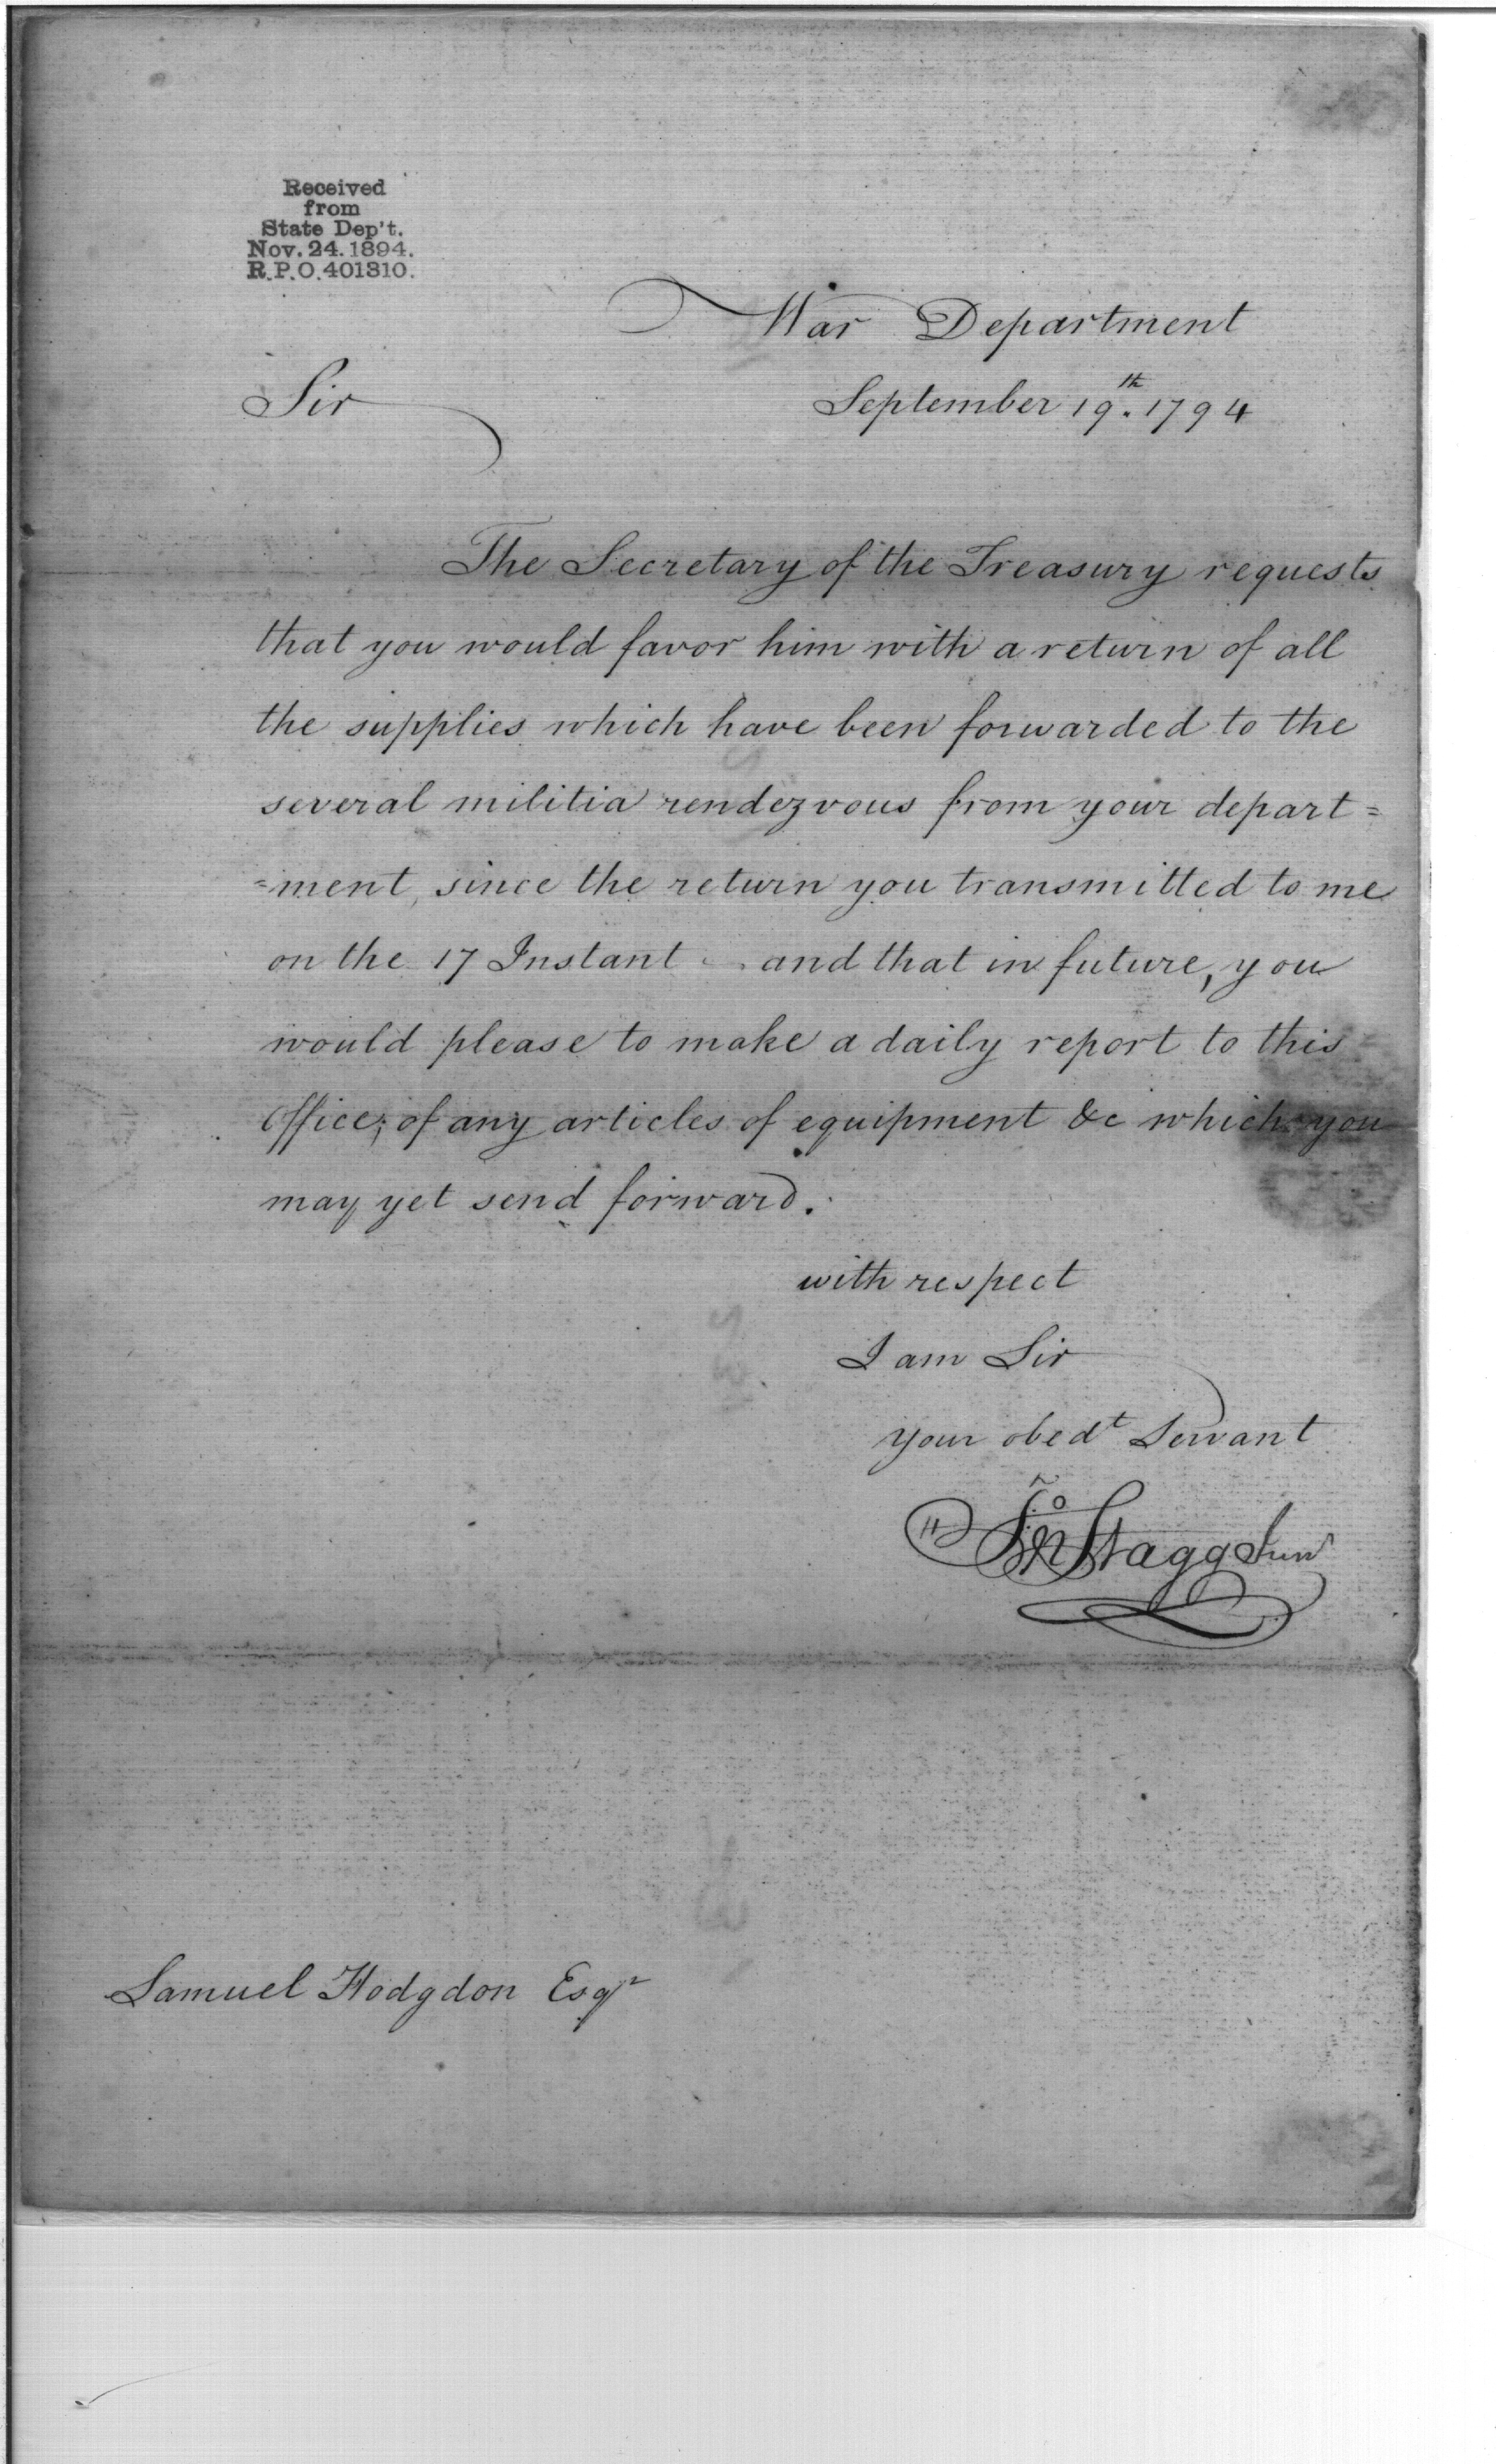 Received
from
State Dep't.
Nov. 24. 1894.
R.P.O. 401310.
War Department
Sir
September 19.th 1794
The Secretary of the Treasury requests
that you would favor him with a return of all
the supplies which have been forwarded to the
several militia rendezvous from your depart=
=ment, since the return you transmitted to me
on the 17 Instant and that in future, you
would please to make a daily report to this
Office; of any articles of equipment &c which you
may yet send forward.
with respect
I am Sir
your obedt Servant
Jno Stagg Junr
Samuel Hodgdon Esqr